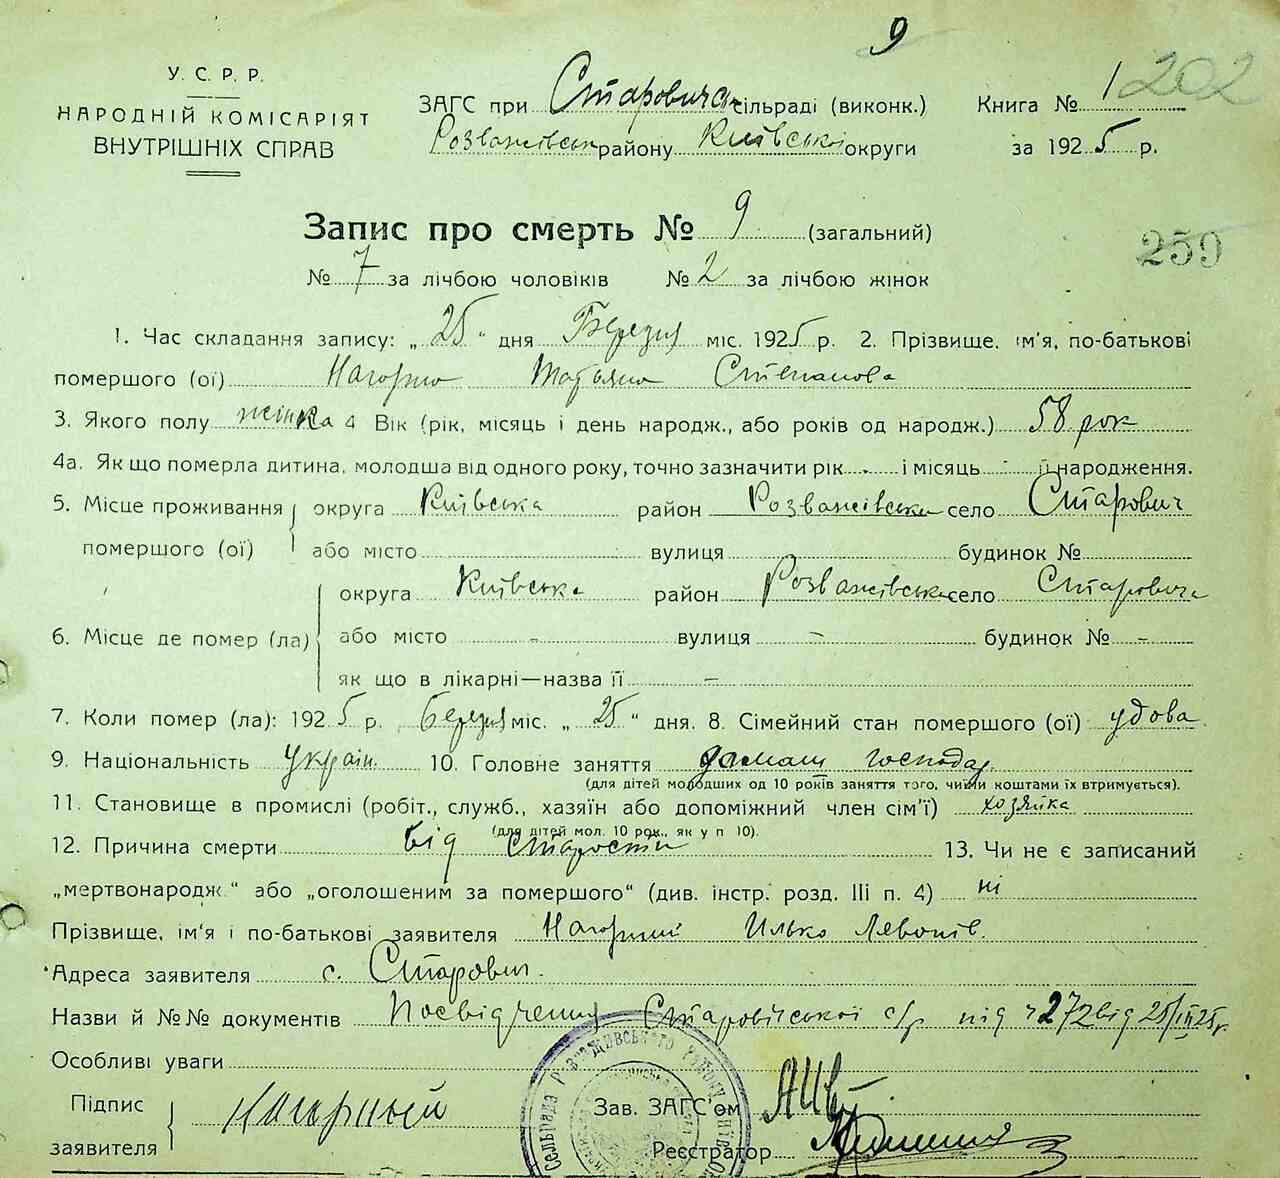 9
У. С. Р. Р.
НАРОДНІЙ КОМІСАРІЯТ
ВНУТРІШНІХ СПРАВ
ЗАГС при Старовича сільраді (виконк.)
Розважівськ району Київської округи
Книга № 1 202
за 1925 р.
Запис про смерть № 9 (загальний)
259
№ 7 за лічбою чоловіків № 2 за лічбою жінок
1. Час складання запису: „ 25 " дня Березня міс. 1925 р. 2. Прізвище, ім'я, по-батькові
помершого (ої) Нагорна Татьяна Степанова
3. Якого полу жінка 4 Вік (рік, місяць і день народж., або років од народж.) 58 рок
4а. Як що померла дитина, молодша від одного року, точно зазначити рік і місяць її народження.
5. Місце проживання округа Київська район Розважівська село Старович
помершого (ої) або місто вулиця будинок №
округа Київська район Розважівська село Старовича
6. Місце де помер (ла) або місто - вулиця - будинок № -
як що в лікарні—назва її -
7. Коли помер (ла): 1925 р. Березня міс. „ 25 " дня. 8. Сімейний стан помершого (ої) удова
9. Національність україн. 10. Головне заняття домаш господар.
(для дітей молодших од 10 років заняття того, чиїми коштами їх втримується).
11. Становище в промислі (робіт., служб., хазяїн або допоміжний член сім'ї) хозяйка
(для дітей мол. 10 рок., як у п 10).
12. Причина смерти від старости 13. Чи не є записаний
„мертвонародж." або „оголошеним за помершого" (див. інстр. розд. III п. 4) ні
Прізвище, ім'я і по-батькові заявителя Нагорний Илько Левонів.
Адреса заявителя с. Старович.
Назви й №№ документів Посвідчення Старовічської с/р під ч 272 від 25/III 25 р
Особливі уваги
Підпис
заявителя
Нагорный
Зав. ЗАГС'ом
Реєстратор